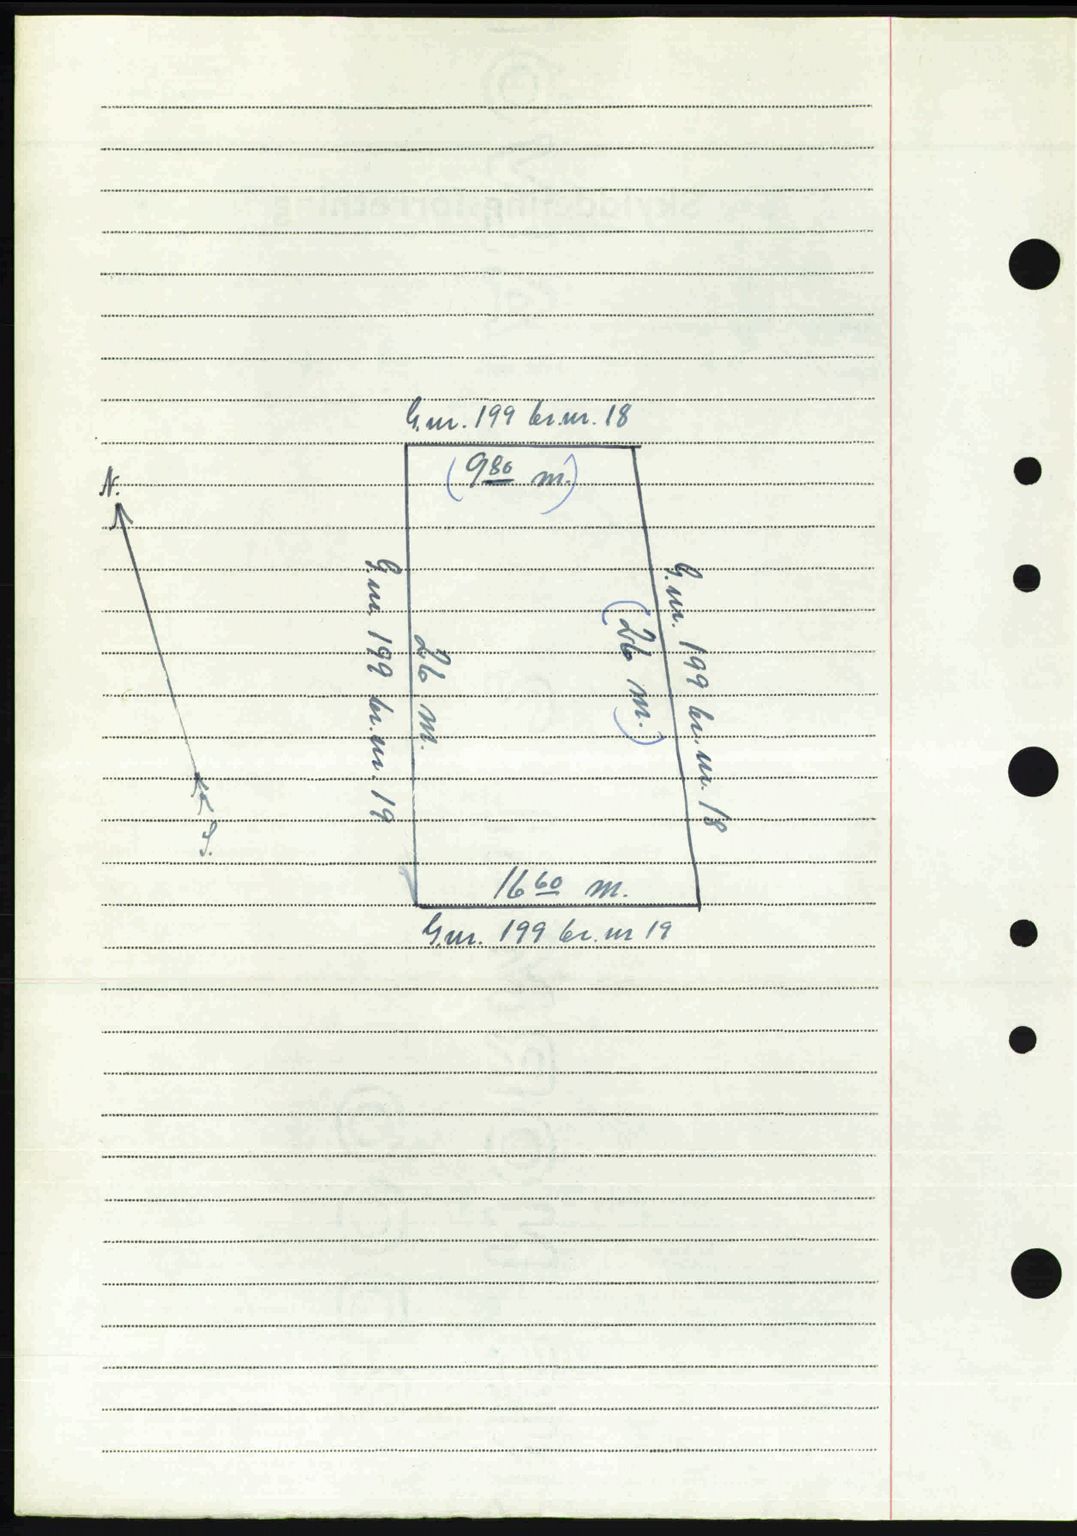 G.nr. 199 br.nr. 18
(9.80 m.)
N.
G.nr. 199 br.nr. 19
26 m.
(26 m.)
G.nr. 199 br.nr. 18
S.
16.60 m.
G.nr. 199 br.nr 19